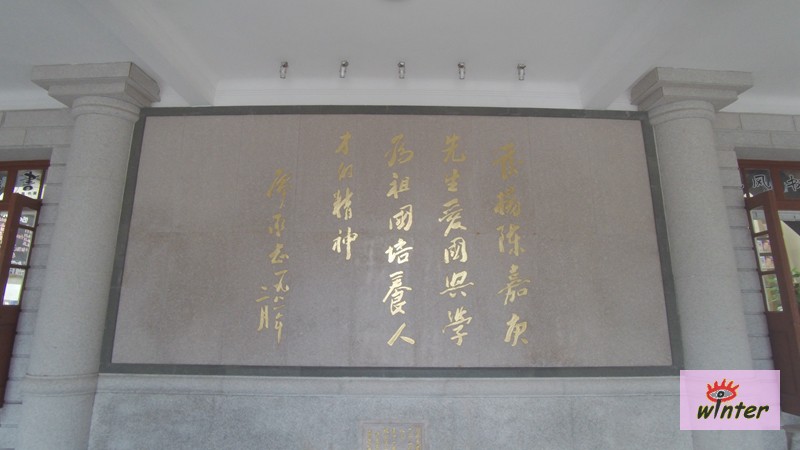 发扬陈嘉庚
先生爱國興學
為祖國培養人
才的精神
廖承志一九八一年
二月
winter